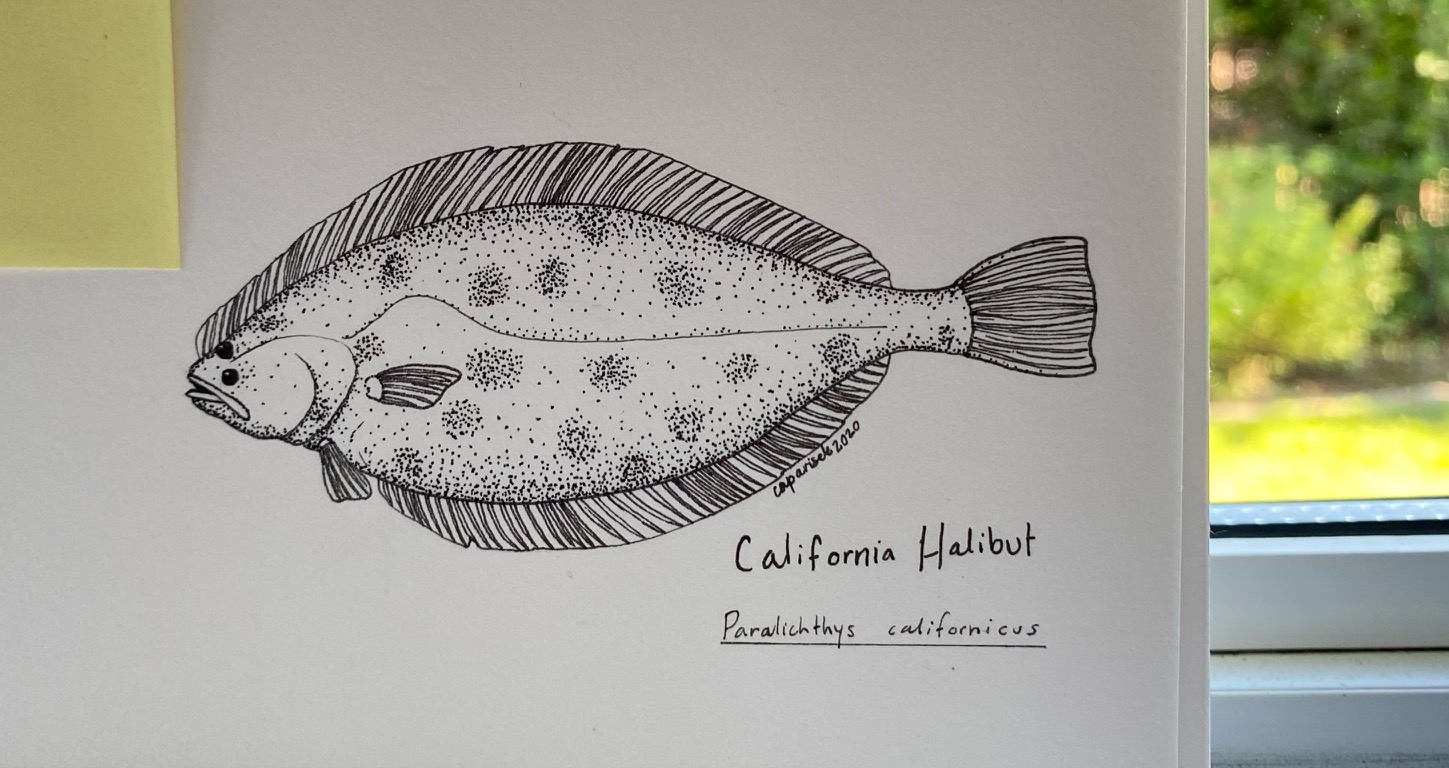 caparisek 2020
California Halibut
Paralichthys californicus